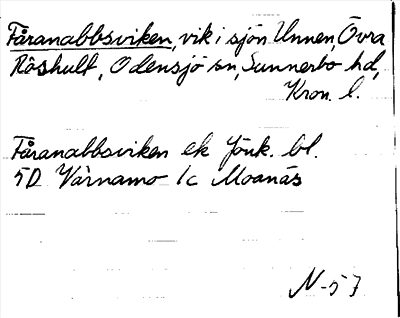 Fåranabbsviken, vik i sjön Unnen, Övra
Röshult, Odensjö sn, Sunnerbo hd,
Kron. l.
Fåranabbsviken ek Jönk. bl.
5D Värnamo 1c Moanäs
N-57